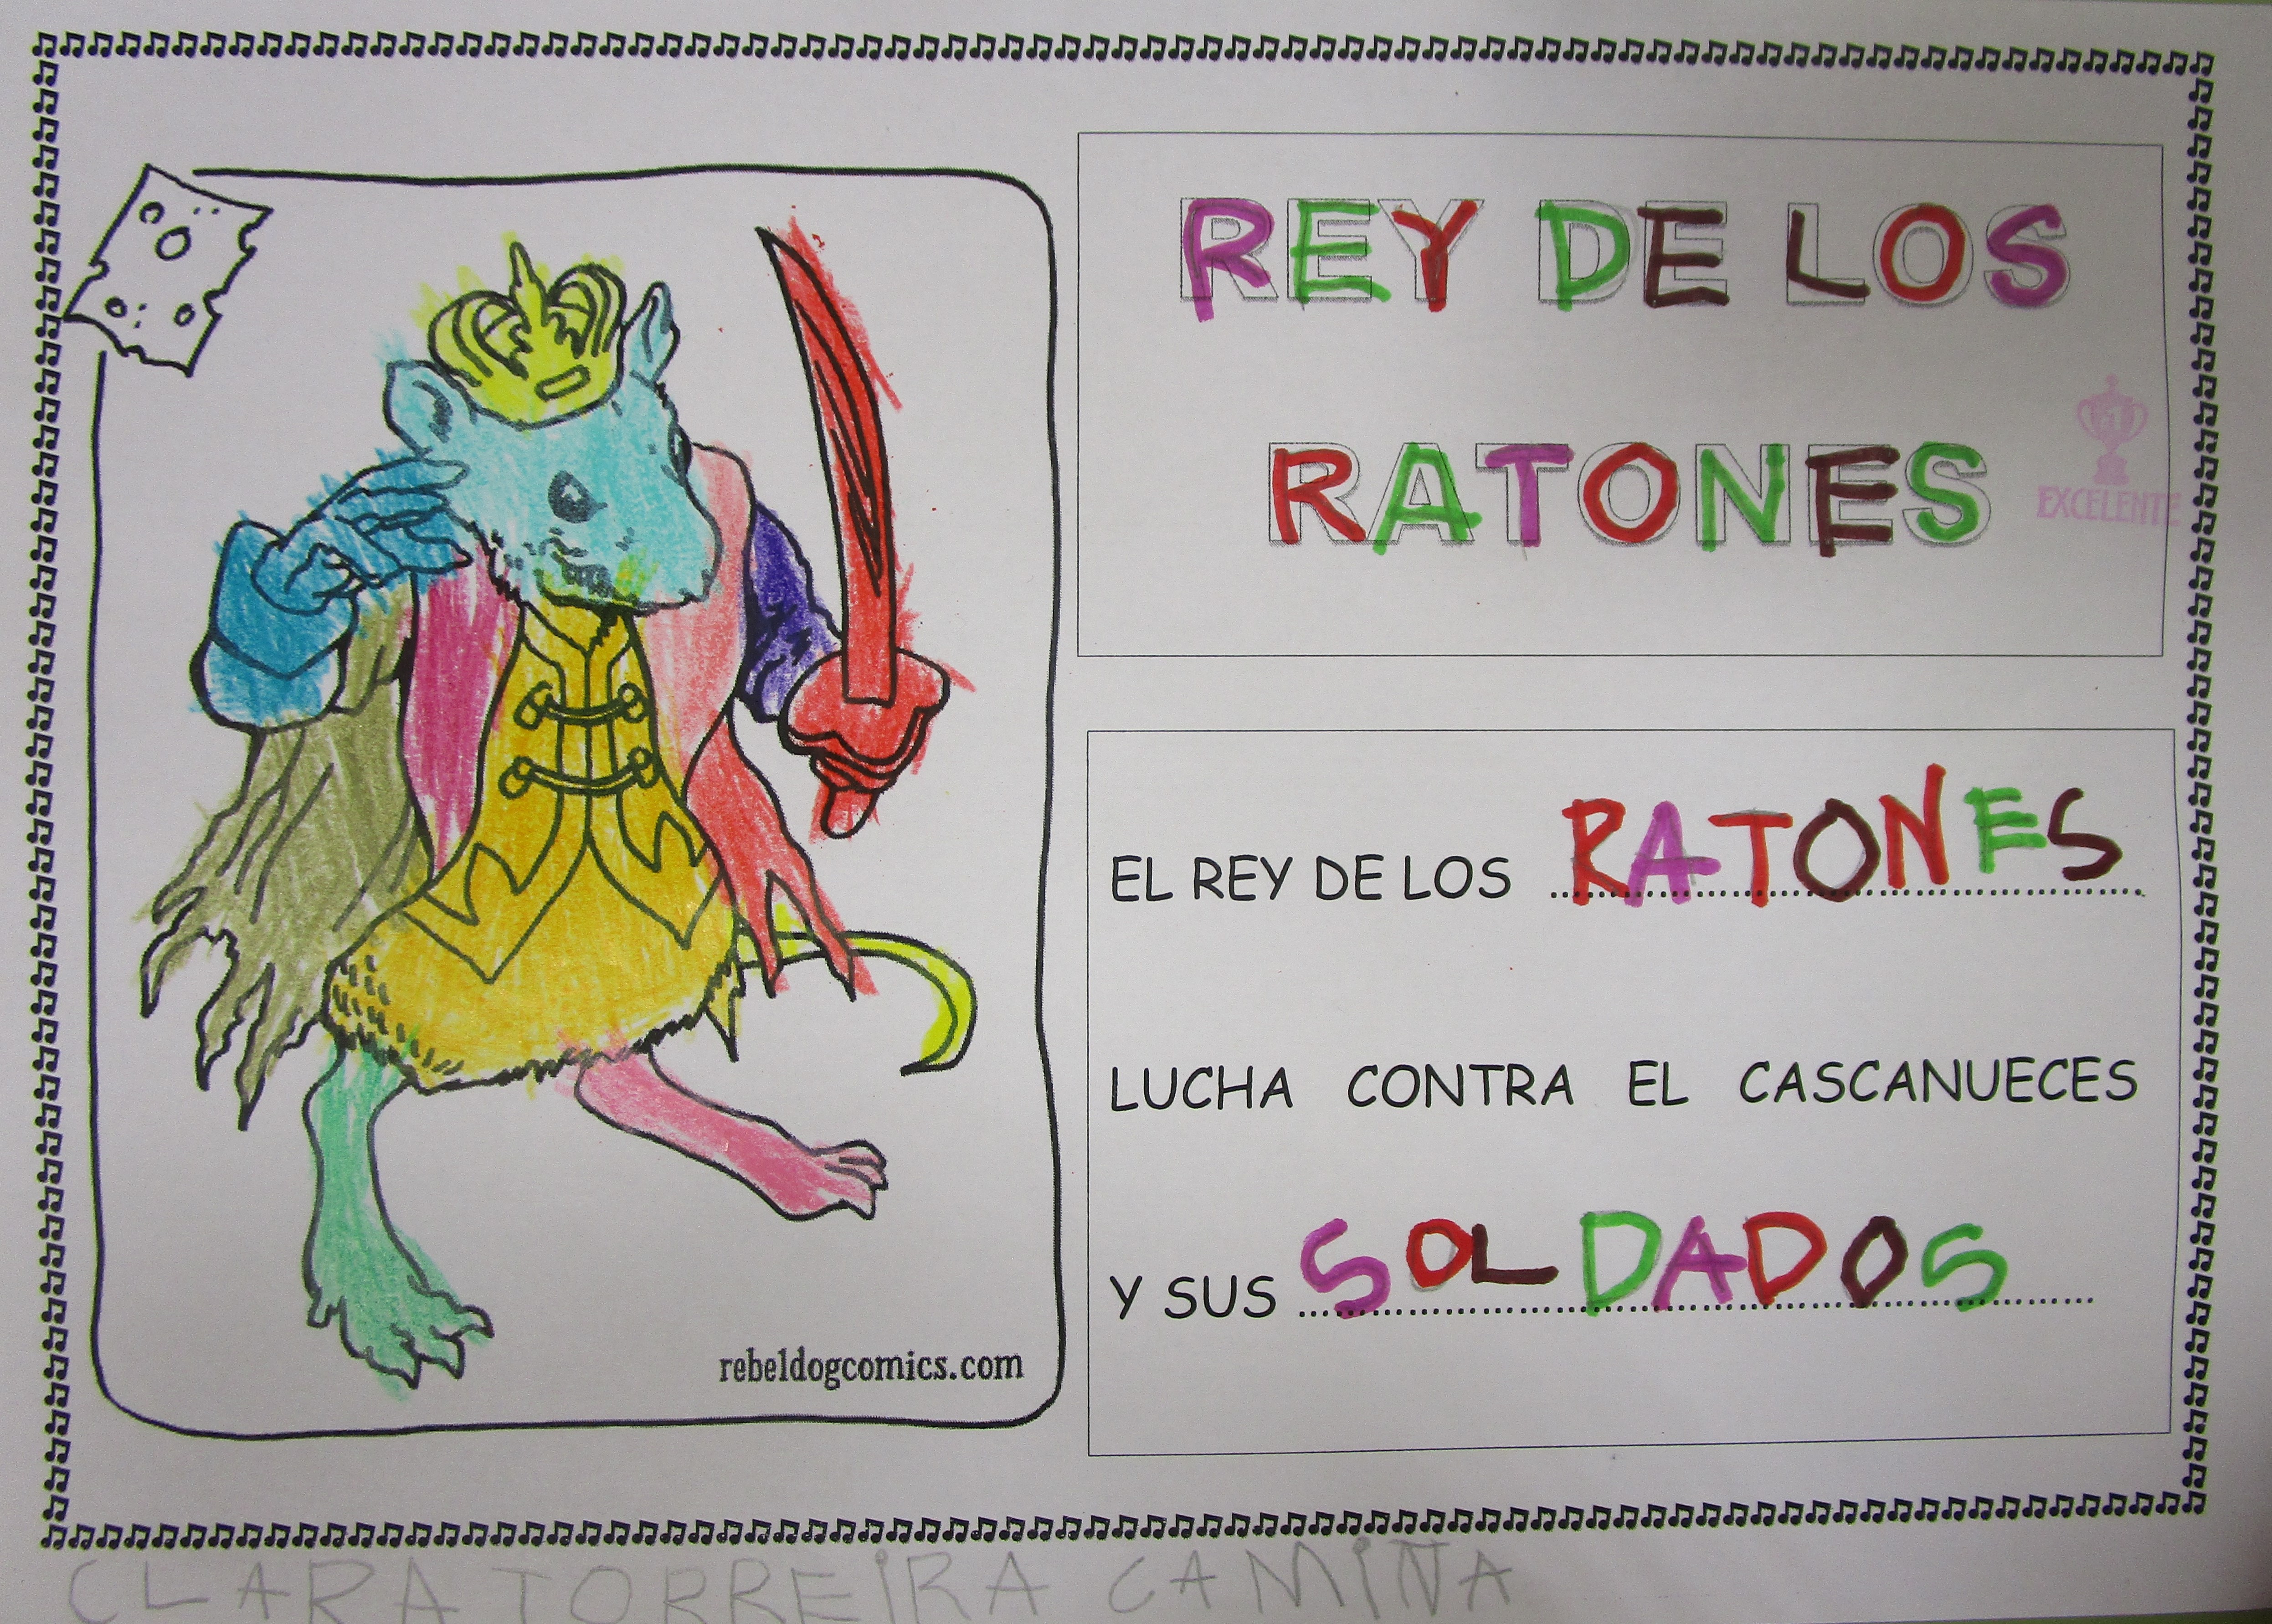 REY DE LOS
RATONES
#1
EXCELENTE
EL REY DE LOS RATONES
LUCHA CONTRA EL CASCANUECES
Y SUS SOLDADOS
rebeldogcomics.com
CLARA TORREIRA CAMIÑA